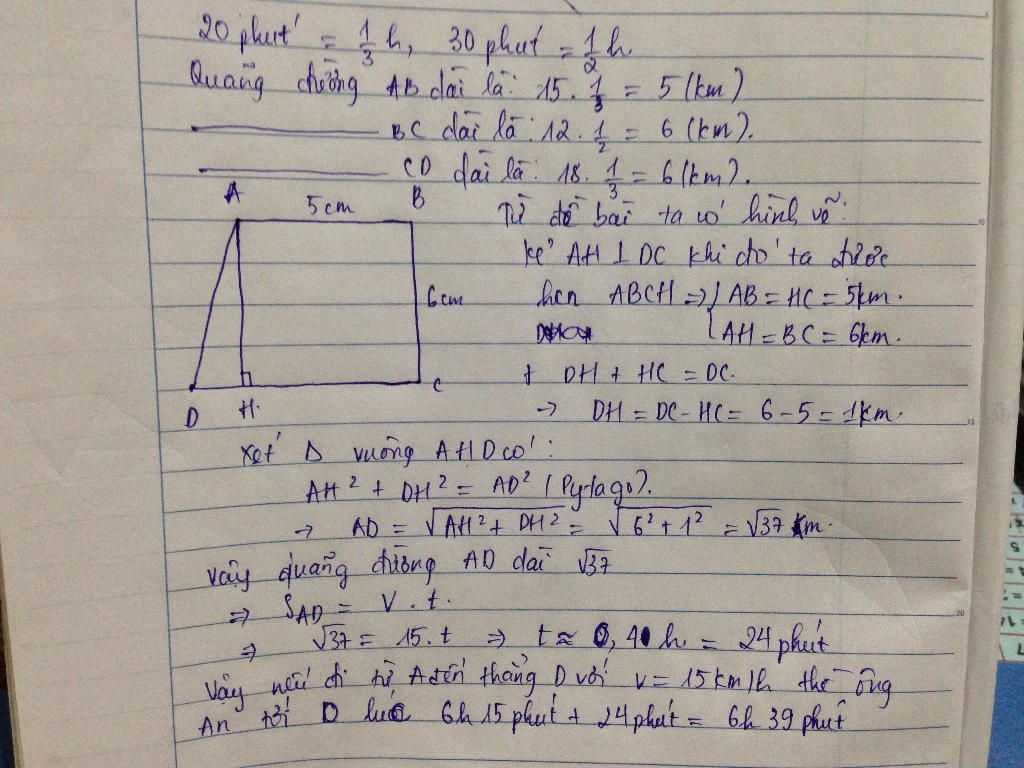 20 phút = 1/3 h, 30 phút = 1/2 h.
Quãng đường AB dài là: 15. 1/3 = 5 (km)
BC dài là: 12. 1/2 = 6 (km).
CD dài là: 18. 1/3 = 6 (km).
A 5 cm B
Từ đề bài ta có hình vẽ:
kẻ AH ⊥ DC khi đó ta được
6 cm
hcn ABCH => { AB = HC = 5km.
AH = BC = 6km.
+ DH + HC = DC.
D H. C
-> DH = DC - HC = 6 - 5 = 1km.
Xét Δ vuông AHD có:
AH² + DH² = AD² (Pytago).
-> AD = √(AH² + DH²) = √(6² + 1²) = √37 km.
Vậy quãng đường AD dài √37
=> S_AD = V . t.
=> √37 = 15. t => t ≈ 0,40 h = 24 phút
Vậy nếu đi từ A đến thẳng D với v = 15 km/h thì ông
An tới D lúc 6h 15 phút + 24 phút = 6h 39 phút